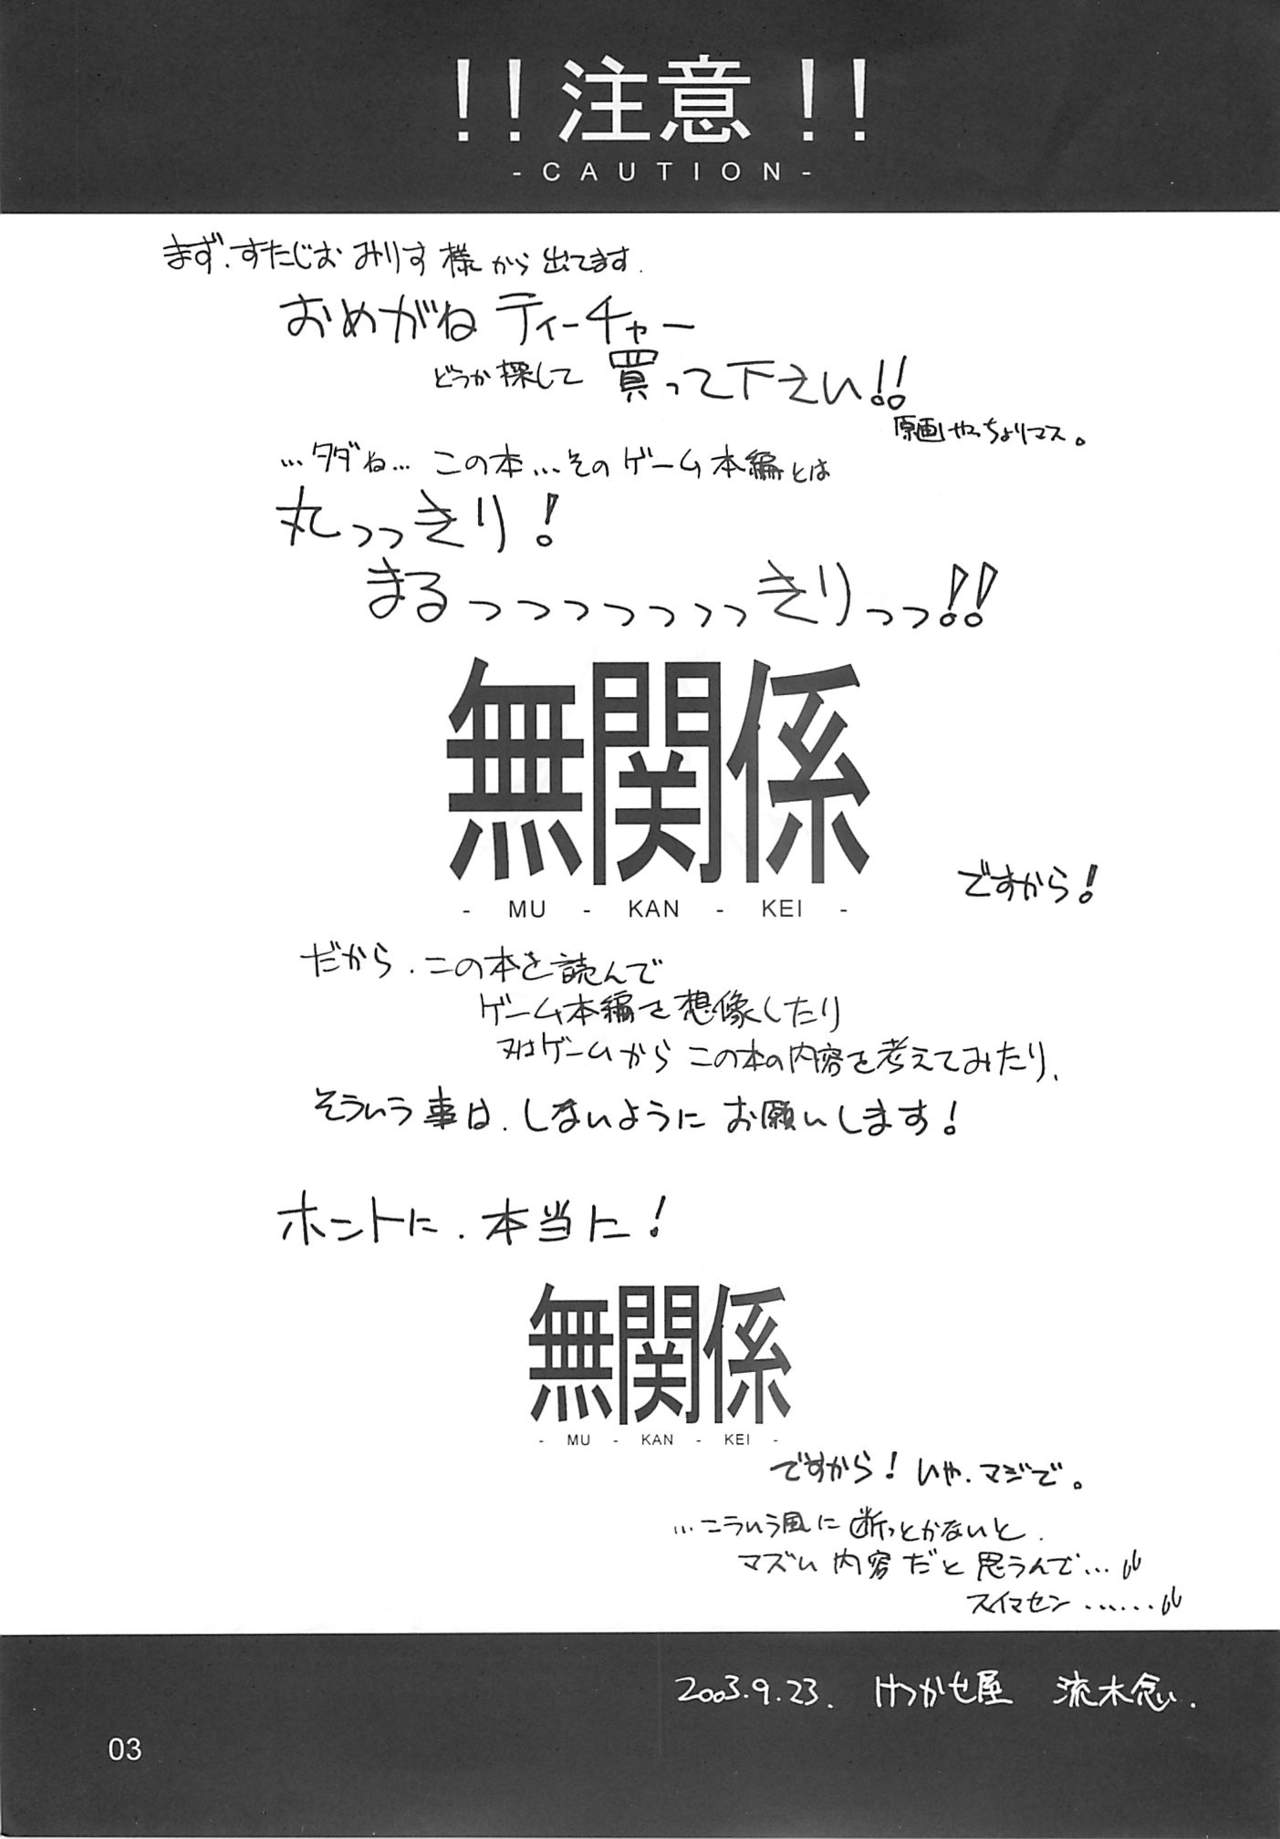 !!注意!!
- CAUTION -
まず、すたじお みりす 様から 出てます、
おめがね ティーチャー
どうか探して 買って下さい!!
原画 やっちょりマス。
…タダね… この本…そのゲーム本編とは
丸っっきり!
まるっっっっっっっきりっっ!!
無関係
- MU - KAN - KEI -
ですから!
だから、この本を読んで
ゲーム本編を想像したり
又はゲームから この本の内容を考えてみたり、
そういう事は、しないように お願いします!
ホントに、本当に!
無関係
- MU - KAN - KEI -
ですから! いや、マジで。
…こういう風に 断っとかないと、
マズい内容だと 思うんで…
スイマセン……
2003.9.23. けつかせ屋 流木念
03